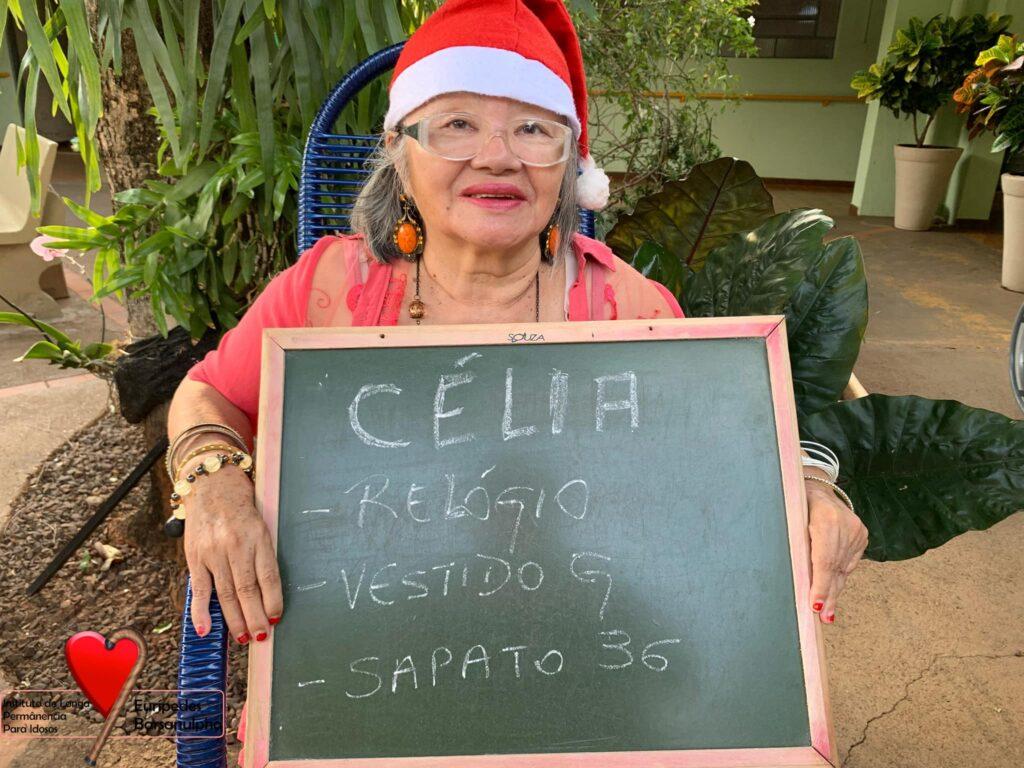 SOUZA
CÉLIA
- RELÓGIO
- VESTIDO G
- SAPATO 36
Instituto de Longa
Permânencia
Para Idosos
Eurípedes
Barsanulpho